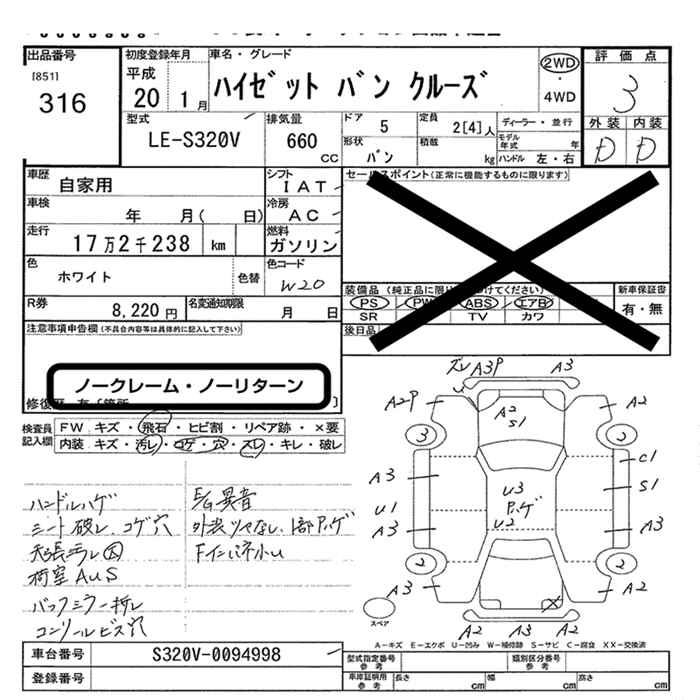 出品番号
[851]
316
初度登録年月
平成
20 1月
車名・グレード
ハイゼット バン クルーズ
2WD
・
4WD
評価点
3
外装 内装
D D
型式
LE-S320V
排気量
660
cc
ドア
5
定員
2[4]人
ディーラー・並行
形状
バン
積載
kg
モデル年式 年
ハンドル 左・右
車歴
自家用
シフト
IAT
セールスポイント(正常に機能するものに限ります)
車検
年 月( 日)
冷房
AC
走行
17万2千238 km
燃料
ガソリン
色
ホワイト
色替
色コード
W20
装備品(純正品に限り つけてください)
PS PW ABS エアB
SR TV カワ
新車保証書
有・無
R券
8,220円
名変通知期限
月 日
後日品
注意事項申告欄(不具合内容等は具体的に記入して下さい)
ノークレーム・ノーリターン
検査員記入欄
FW キズ・飛石・ヒビ割・リペア跡・×要
内装 キズ・汚レ・コゲ・穴・スレ・キレ・破レ
ハンドルハゲ
シート破レ、コゲ穴
天張汚レ大
荷室AUS
バックミラー折レ
コンソールビス穴
E/G異音
外装ツヤなし、1部P.ハゲ
ズレ A3P A3
A2P A2 S1 A2
3 2
A3 C1
S1
U3
P.ハゲ
U2
U1
A3 A3
2 2
A3 A2
A2 A3 A2
スペア
A−キズ E−エクボ U−凹み W−補修跡 S−サビ C−腐食 XX−交換済
車台番号
S320V-0094998
型式指定番号
参考
類別区分番号
参考
登録番号
車庫証明用
参考
長さ cm 幅 cm 高さ cm